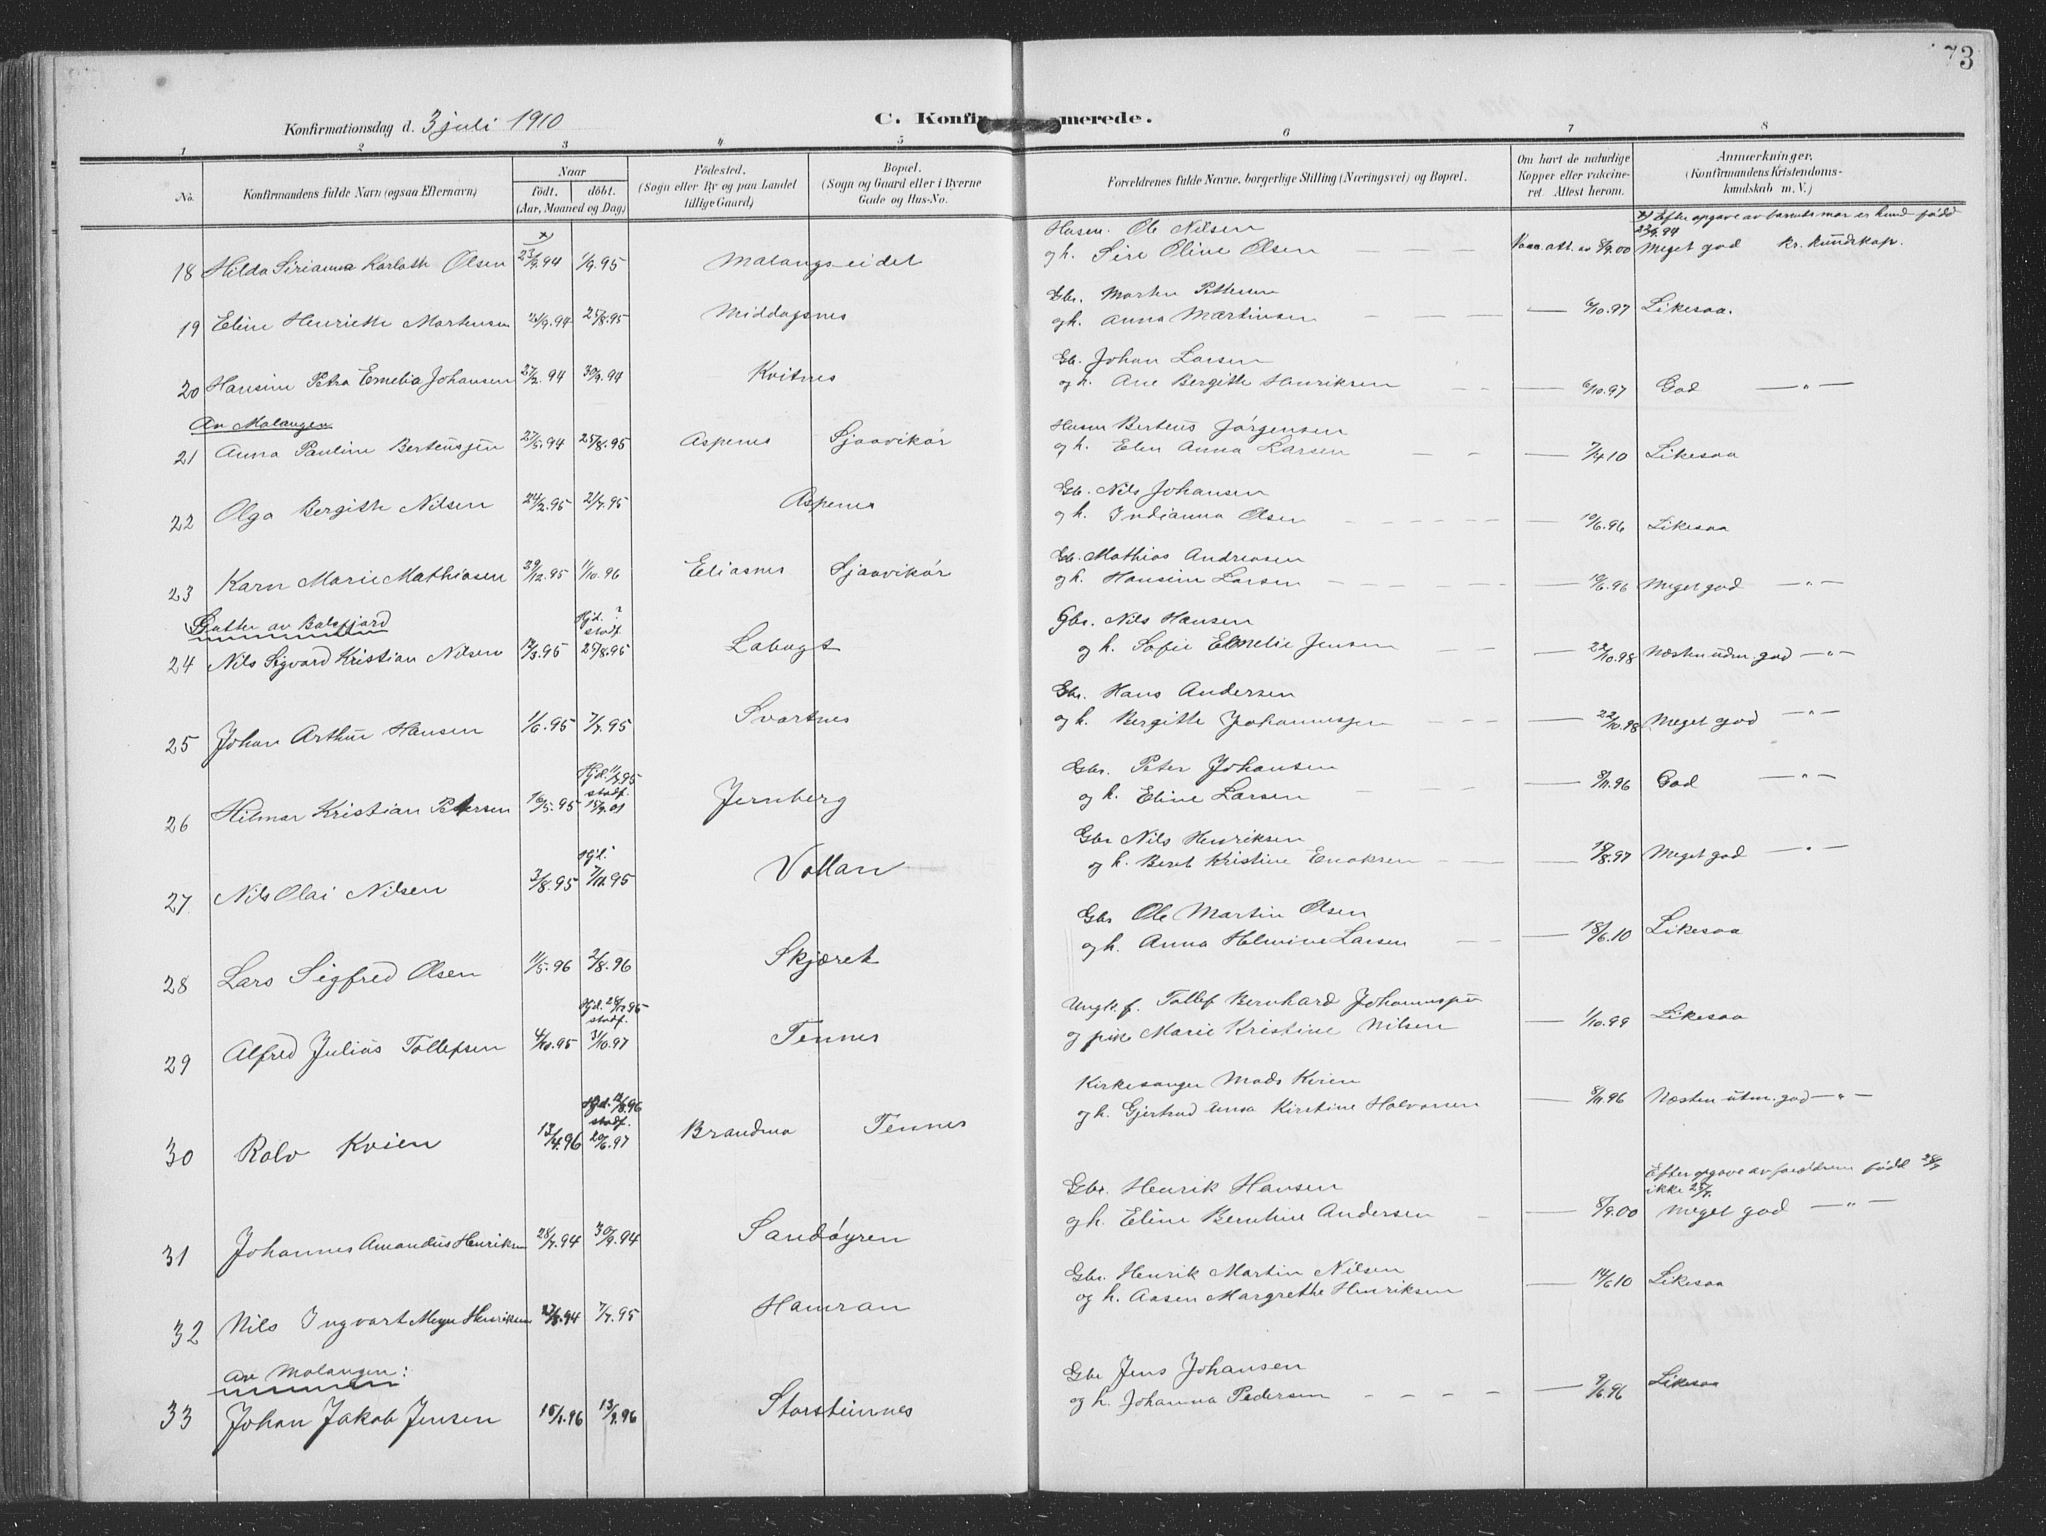 73
Konfirmationsdag d. 3 juli 1910
C. Konfirmerede.
1 2 3 4 5 6 7 8
No. Konfirmandens fulde Navn (ogsaa Efternavn) Naar født, døbt. (Aar, Maaned og Dag) Fødested. (Sogn eller By og paa Landet tillige Gaard) Bopæl. (Sogn og Gaard eller i Byerne Gade og Hus-No. Forældrenes fulde Navne, borgerlige Stilling (Næringsvei) og Bopæl. Om havt de naturlige Kopper eller vaccineret. Attest herom. Anmærkninger. (Konfirmandens Kristendomskundskab m. V.)
x) Efter opgave av barnets mor er hund født 23/9.94
Husm. Ole Nilsen
18 Hilda Sirianna Karlotte Olsen x) 23/9.94 1/9.95 Malangseidet og h. Sire Oline Olsen Vacc. att. av 8/9.00 Meget god kr. kundskap.
Gbr. Morten Pettersen
19 Eline Henriette Mortensen /9.94 25/8.95 Middagsnes og h. Anna Martinsen — 6/10.97 Likesaa.
Gb. Johan Larsen
20 Hansine Petra Emelia Johansen 27/2.94 30/9.94 Kvitnes og h. Ane Bergitte Henriksen — 6/10.97 God —"—
Av Malangen
Husm Berteus Jørgensen
21 Anna Pauline Berteussen 27/5.94 25/8.95 Aspenes Sjaavikør og h. Elen Anna Larsen — 7/4.10 Likesaa
Gb. Nils Johansen
22 Olga Bergitte Nilsen 24/2.95 21/7.95 Aspenes og h. Indianna Olsen — 10/6.96 Likesaa
Gb. Mathias Andreasen
23 Karn Marie Mathiasen 29/12.95 11/10.96 Eliasnes Sjaavikør og h. Hansine Larsen — 10/6.96 Meget god —"—
Gutter av Balsfjord
Hjd. ? stadf.
Gbr. Nils Hansen
24 Nils Sigvard Kristian Nilsen 12/3.95 25/8.95 Labugt og h. Sofie Emelie Jensen — 22/10.98 Næsten udm. god —"—
Gbr. Hans Andersen
25 Johan Arthur Hansen 1/6.95 7/7.95 Svartnes og h. Bergitte Johannessen — 22/10.98 Meget god —"—
Hjd. 11/7.95 stadf.
Gbr. Peter Johansen
26 Hilmar Kristian Petersen 16/5.95 15/9.01 Jernberg og h. Eline Larsen — 8/11.96 God —"—
Hjd.
Gbr Nils Henriksen
27 Nils Olai Nilsen 3/8.95 7/11.95 Vollan og h. Beret Kristine Enoksen — 18/8.97 Meget god —"—
Gbr Ole Martin Olsen
28 Lars Sigfred Olsen 11/5.96 2/8.96 Skjæret og h. Anna Helmine Larsen — 18/6.10 Likesaa
Hjd. 28/12.95 stadf.
Ungk. f. Tollef Bernhard Johannessen
29 Alfred Julius Tollefsen 4/10.95 31/10.97 Tennes og pike Marie Kristine Nilsen — 1/10.99 Likesaa
Hjd. 12/8.96 stadf.
Kirkesanger Mads Kvien
30 Rolv Kvien 13/4.96 20/6.97 Brandmo Tennes og h. Gjertrud Anna Kirstine Halvorsen — 8/11.96 Næsten utm. god —"—
Efter opgave av forældrene født 28/7 ikke 25/7.
Gbr. Henrik Hansen
31 Johannes Amandus Henriksen 28/7.94 30/9.94 Sandøyren og h. Eline Berntine Andersen — 8/9.00 Meget god —"—
Gbr. Henrik Martin Nilsen
32 Nils Ingvart Meyer Henriksen 27/8.94 7/7.95 Hamran og h. Aasen Margrethe Henriksen — 14/6.10 Likesaa
Av Malangen:
Gbr Jens Johansen
33 Johan Jakob Jensen 15/1.96 13/9.96 Storsteinnes og h. Johanna Pedersen — 9/6.96 Likesaa